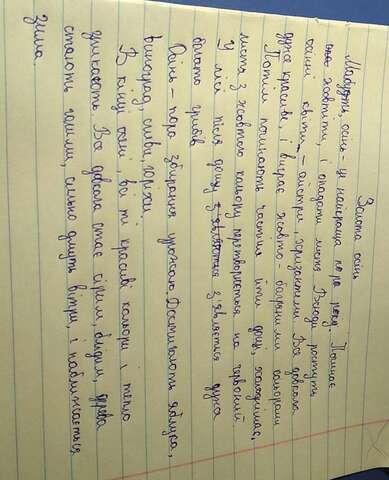 Золота осінь
Мабуть, осінь - це найкраща пора року. Починає
жовтіти, і опадати листя. Всюди ростуть
осінні квіти - айстри, хризантеми. Все довкола
дуже красиве, і виграє жовто-багряними кольорами.
Потім починають частіше іти дощі, холоднішає,
листя з жовтого кольору перетворюється на червоний.
У лісі після дощу з'являється з'являється дуже
багато грибів.
Осінь - пора збирання урожаю. Достигають яблука,
виноград, сливи, горіхи.
В кінці осені, всі ті красиві кольори і тепло
зникають. Все довкола стає сірим, блідим, дерева
стають голими, сильно дмуть вітри, і наближається
зима.